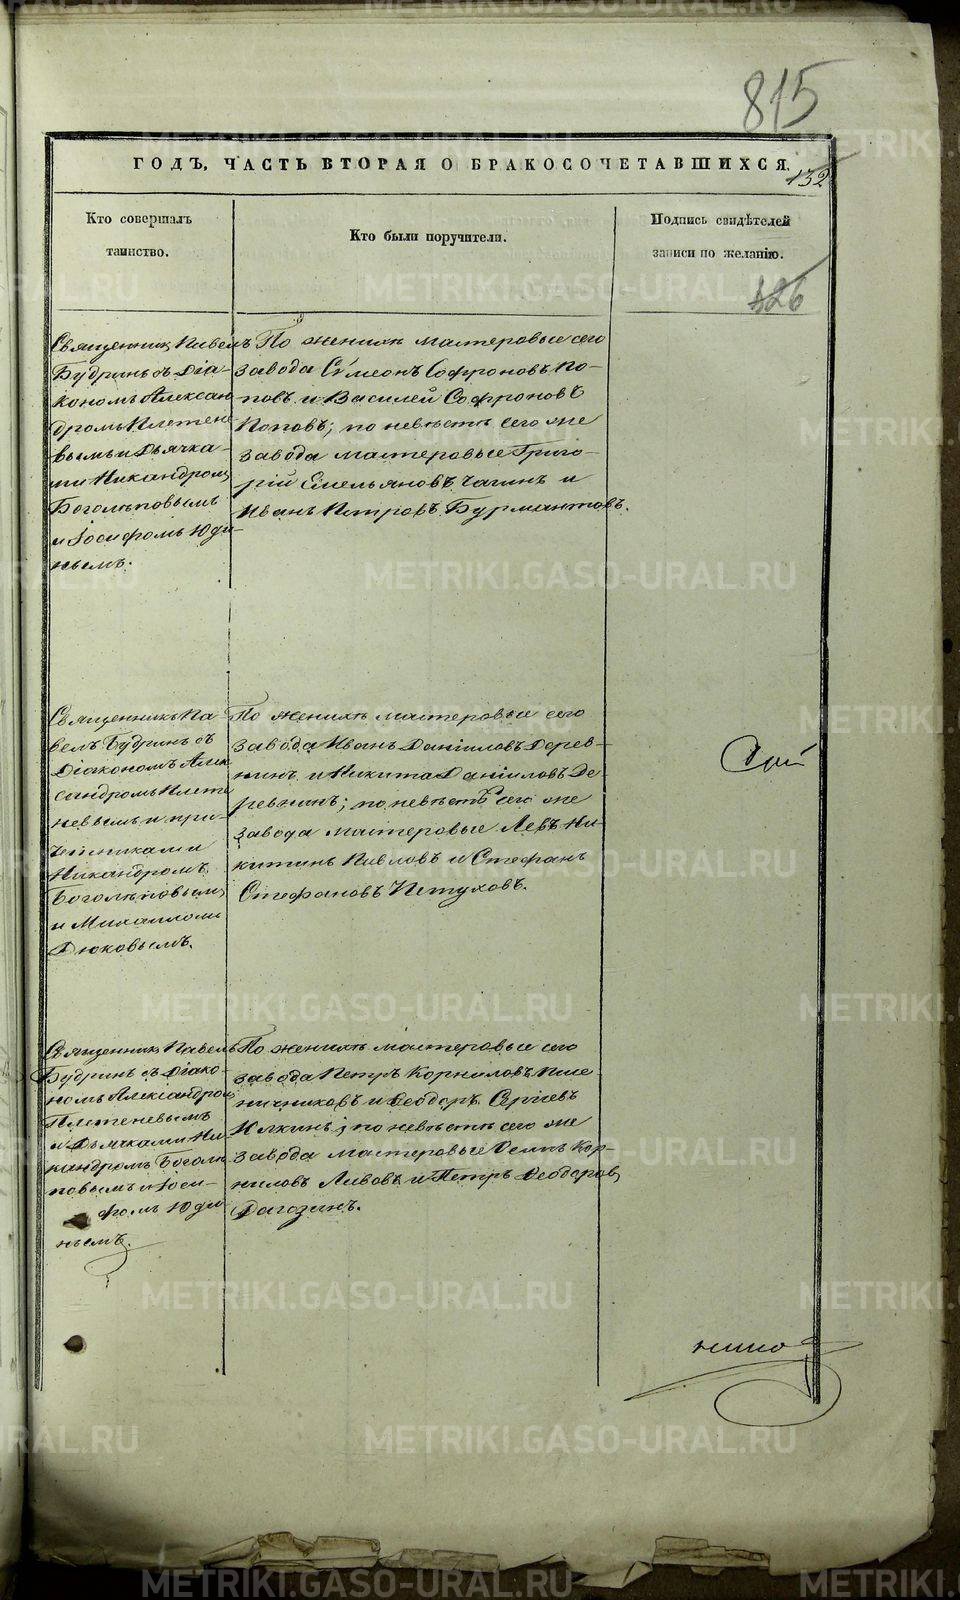 815
ГОДЪ, ЧАСТЬ ВТОРАЯ О БРАКОСОЧЕТАВШИХСЯ.
132
Кто совершалъ
таинство.
Кто были поручители.
Подпись свидѣтелей
записи по желанію.
126
Священникъ Павелъ
Будринъ съ Діа-
кономъ Алексан
дромъ Плетене
вымъ и Дьячка-
ми Никандромъ
Боголѣповымъ
и Іосифомъ Юди-
нымъ.
По женихѣ мастеровые сего
завода Сѵмеонъ Софроновъ По-
повъ и Василей Софроновъ
Поповъ; по невѣстѣ сего же
завода мастеровые Григо-
рій Емельяновъ Чагинъ и
Иванъ Петровъ Бурмантовъ.
Священникъ Па-
велъ Будринъ съ
Діакономъ Алек
сандромъ Плете
невымъ и при-
чтниками
Никандромъ
Боголѣповымъ
и Михаиломъ
Дюковымъ.
По женихѣ мастеровые сего
завода Иванъ Даніиловъ Дерев-
нинъ и Никита Даніиловъ Де-
ревнинъ; по невѣстѣ сего же
завода мастеровые Левъ Ни-
китинъ Павловъ и Стефанъ
Стефановъ Пѣтуховъ.
Священникъ Павелъ
Будринъ съ Діако-
номъ Александром
Плетеневымъ
и Дьячками Ни
кандромъ Боголѣ
повымъ и Іоси-
фомъ Юди
нымъ.
По женихѣ мастеровые сего
завода Петръ Корниловъ Пше
ничниковъ и Ѳеодоръ Сергіевъ
Илкинъ; по невѣстѣ сего же
завода мастеровые Осипъ Кор-
ниловъ Львовъ и Петръ Ѳеодоровъ
METRIKI.GASO-URAL.RU